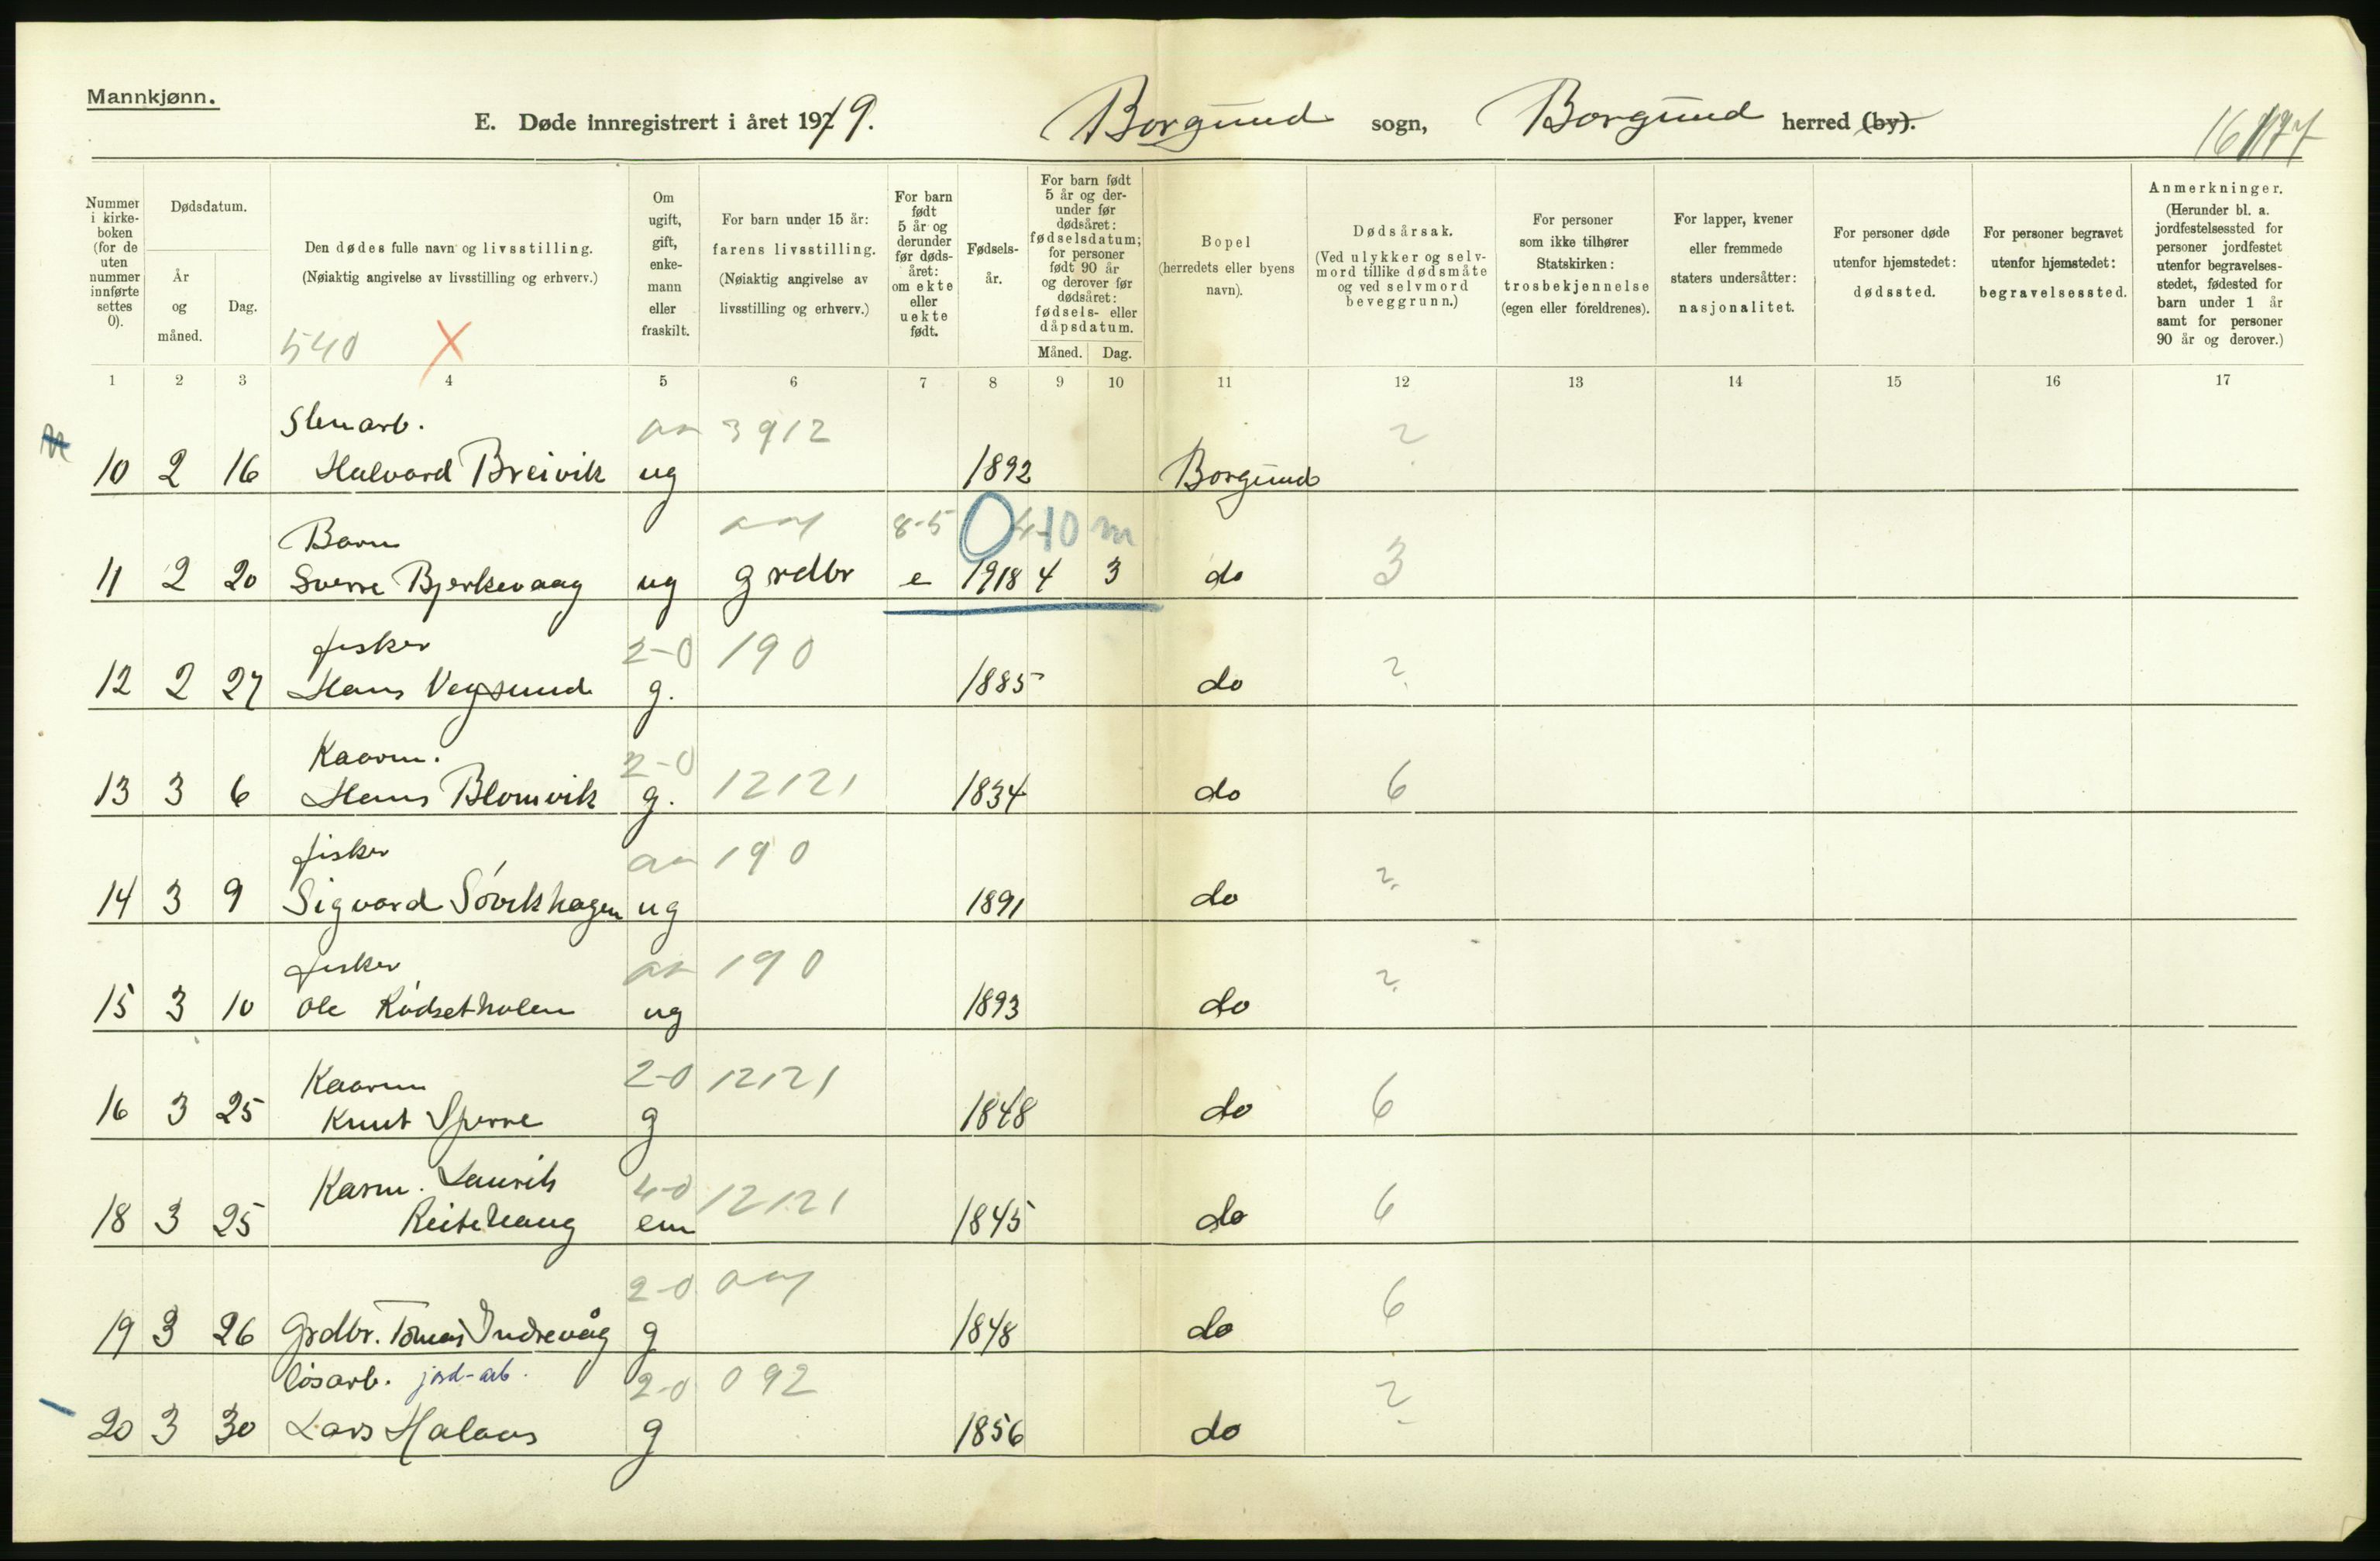 Mannkjønn.
E. Døde innregistrert i året 1919. Borgund sogn, Borgund herred (by).
Nummer i kirke-boken (for de uten nummer innførte settes 0).
Dødsdatum.
År og måned.
Dag.
Den dødes fulle navn og livsstilling.
(Nøiaktig angivelse av livsstilling og erhverv.)
540 X
Om ugift, gift, enke-mann eller fraskilt.
For barn under 15 år: farens livsstilling.
(Nøiaktig angivelse av livsstilling og erhverv.)
For barn født 5 år og derunder før døds-året: om ekte eller uekte født.
Fødsels-år.
For barn født 5 år og der-under før dødsåret: fødselsdatum; for personer født 90 år og derover før dødsåret: fødsels- eller dåpsdatum.
Måned. Dag.
Bopel (herredets eller byens navn).
Dødsårsak.
(Ved ulykker og selv-mord tillike dødsmåte og ved selvmord beveggrunn.)
For personer som ikke tilhører Statskirken: trosbekjennelse (egen eller foreldrenes).
For lapper, kvener eller fremmede staters undersåtter: nasjonalitet.
For personer døde utenfor hjemstedet: dødssted.
For personer begravet utenfor hjemstedet: begravelsessted.
Anmerkninger.
(Herunder bl. a. jordfestelsessted for personer jordfestet utenfor begravelses-stedet, fødested for barn under 1 år samt for personer 90 år og derover.)
1 2 3 4 5 6 7 8 9 10 11 12 13 14 15 16 17
Stenarb. 3912 ?
10 2 16 Halvard Breivik ug 1892 Borgund
Barn 8-5 0 4-10 m
11 2 20 Sverre Bjerkevaag ug grdbr e 1918 4 3 do 3
fisker 2-0 190 ?
12 2 27 Hans Vegsund g. 1885 do
Kaarm. 2-0
13 3 6 Hans Blomvik g. 12121 1834 do 6
fisker 190 ?
14 3 9 Sigvard Søvikhagen ug 1891 do
fisker 190 ?
15 3 10 Ole Rødsetholen ug 1893 do
Kaarm 2-0 12121
16 3 25 Knut Sperre g 1848 do 6
Karm. Laurits 4-0 12121
18 3 25 Reitehaug em 1845 do 6
2-0 6
19 3 26 Grdbr. Tomas Indrevåg g 1848 do
løsarb. jord-arb. 2-0 092 ?
20 3 30 Lars Halaas g 1856 do